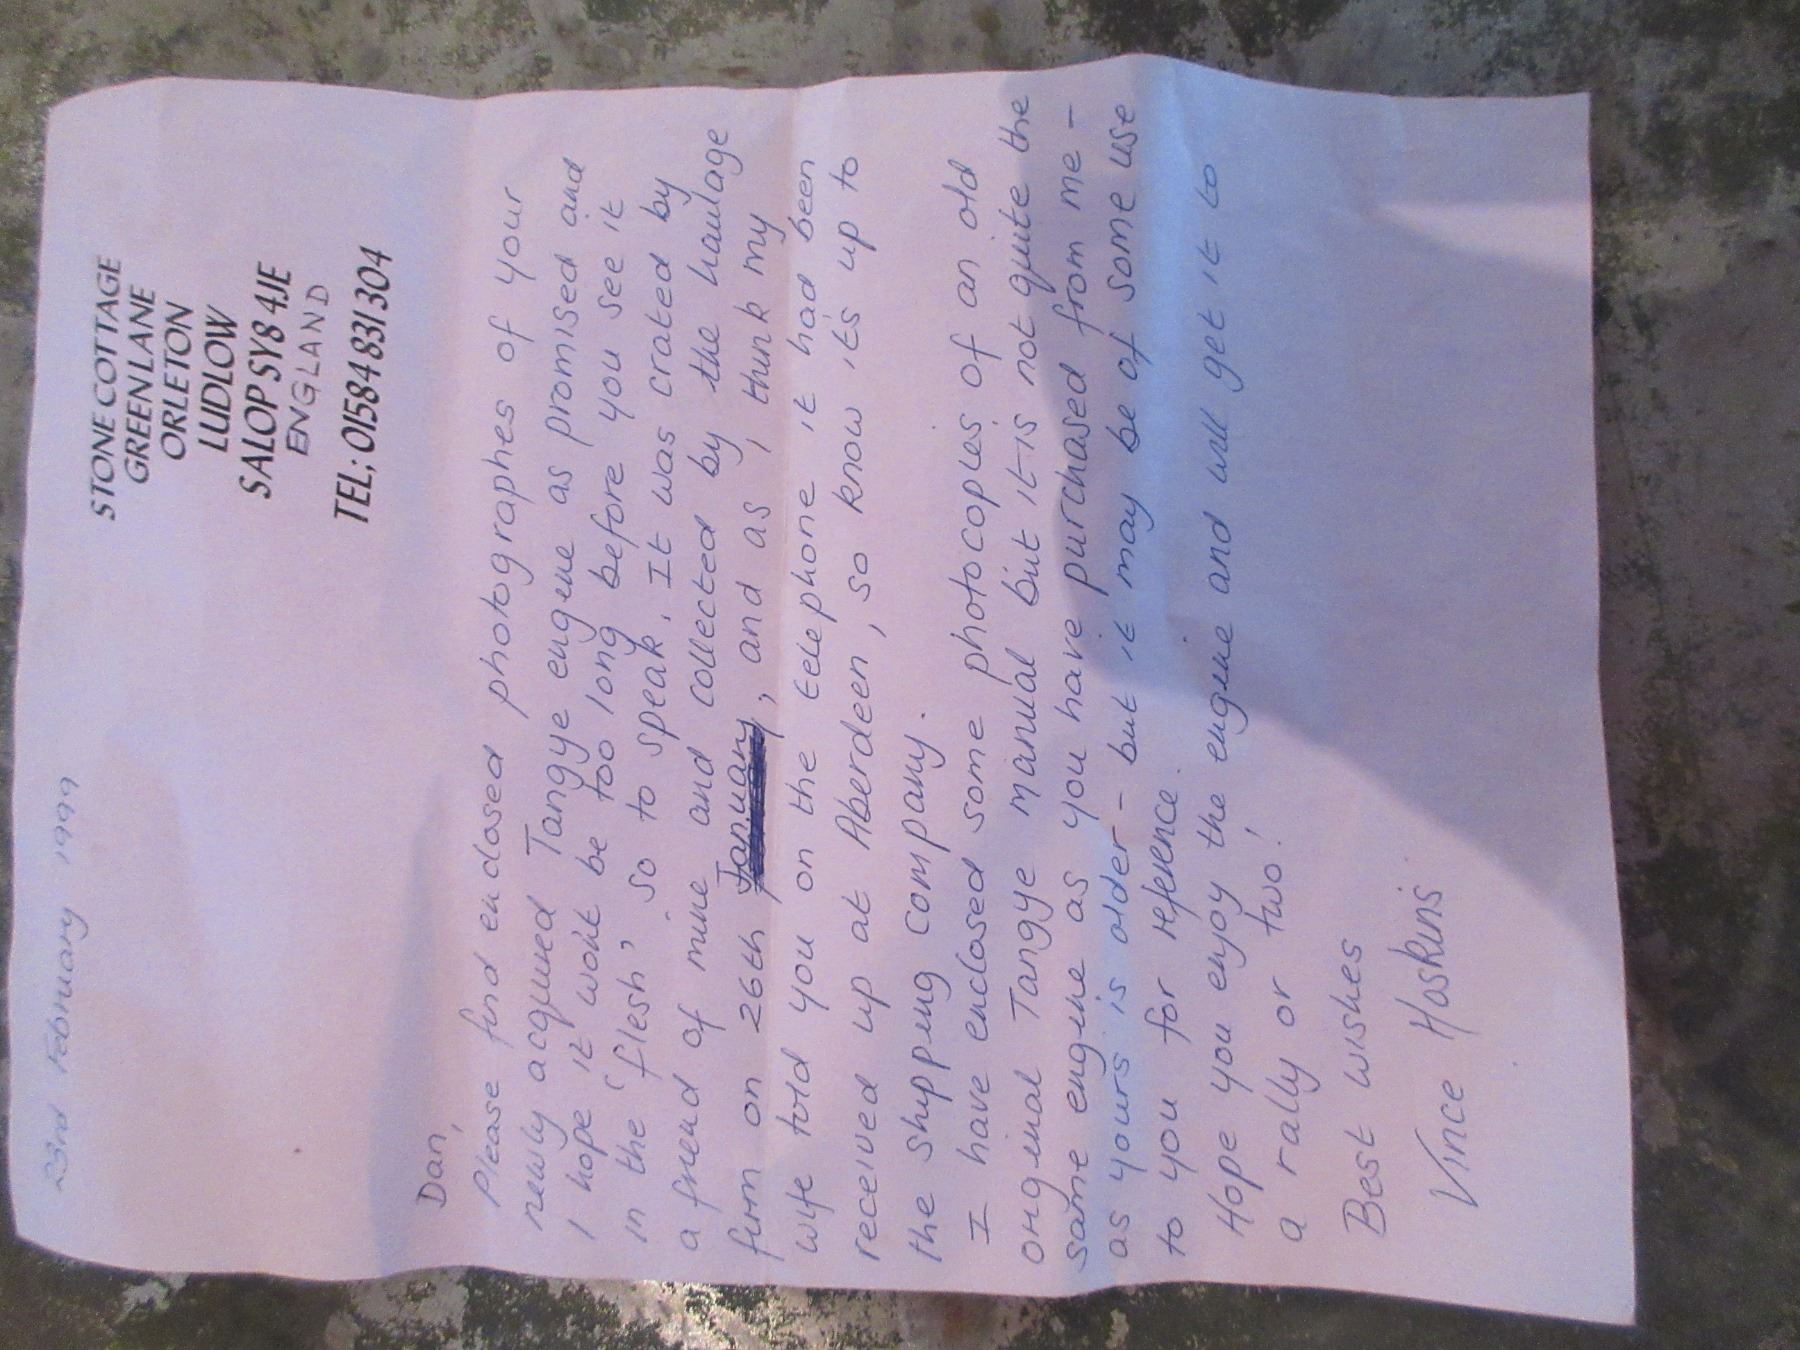 23rd February 1999
STONE COTTAGE
GREEN LANE
ORLETON
LUDLOW
SALOP SY8 4JE
ENGLAND
TEL: 01584 831 304
Dan,
Please find enclosed photographes of your
newly acquired Tangye engine as promised and
I hope it wont be too long before you see it
in the 'flesh', so to speak. It was crated by
a friend of mine and collected by the haulage
firm on 26th January, and as I think my
wife told you on the telephone it had been
received up at Aberdeen, so know it's up to
the shipping company.
I have enclosed some photocopies of an old
original Tangye manual but it is not quite the
same engine as you have purchased from me -
as yours is older - but it may be of some use
to you for reference.
Hope you enjoy the engine and will get it to
a rally or two!
Best wishes
Vince Hoskins